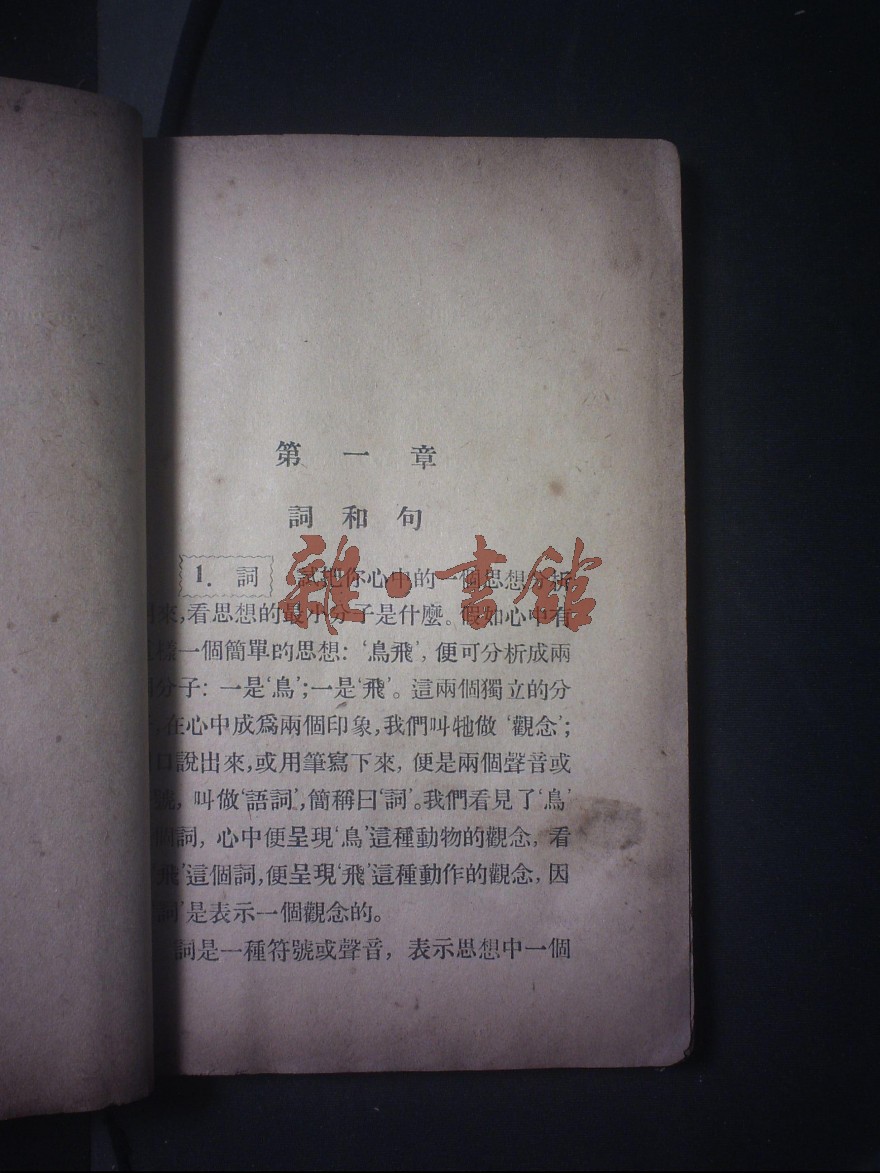 第一章
詞和句
1. 詞 試把你心中的一個思想分析
來,看思想的最小分子是什麼。假如心中有
樣一個簡單的思想:‘鳥飛’,便可分析成兩
分子:一是‘鳥’;一是‘飛’。這兩個獨立的分
,在心中成爲兩個印象,我們叫牠做‘觀念’;
口說出來,或用筆寫下來,便是兩個聲音或
號,叫做‘語詞’,簡稱曰‘詞’。我們看見了‘鳥’
個詞,心中便呈現‘鳥’這種動物的觀念,看
‘飛’這個詞,便呈現‘飛’這種動作的觀念,因
‘詞’是表示一個觀念的。
詞是一種符號或聲音,表示思想中一個
雜·書館